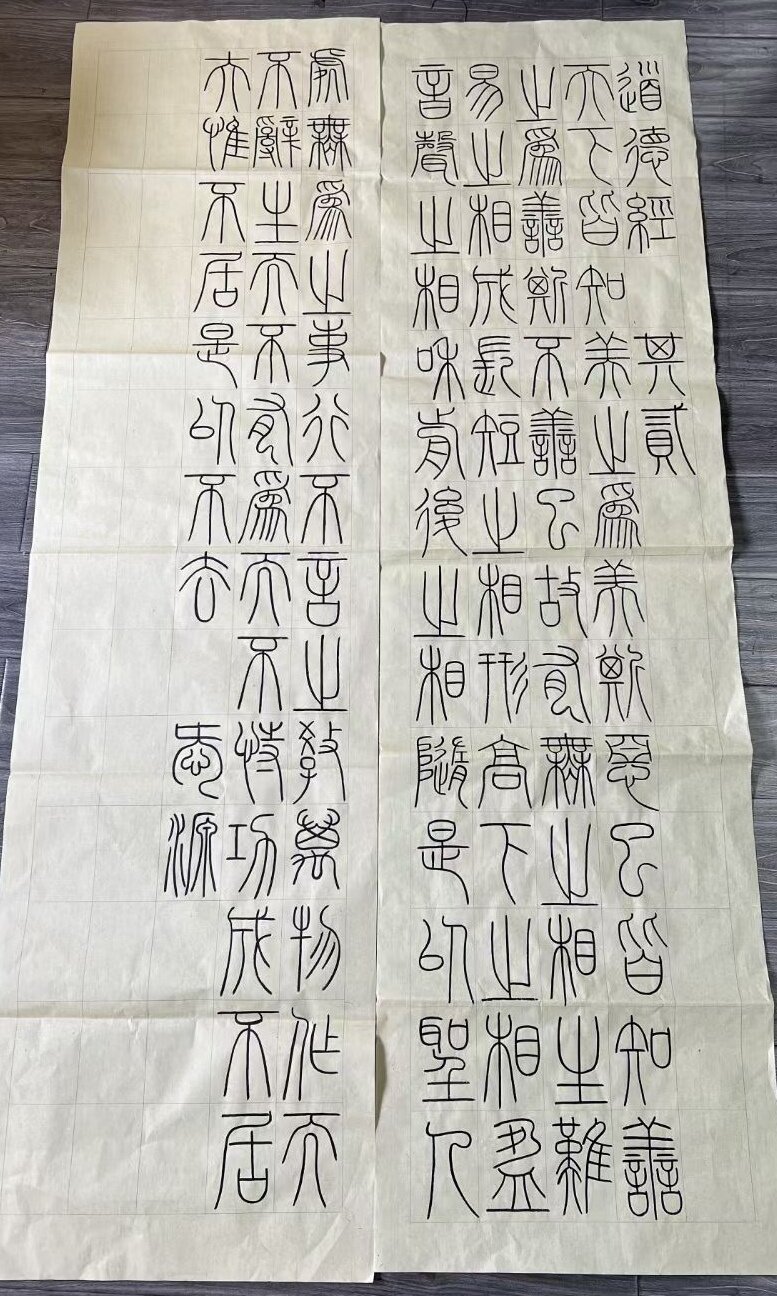 道德經 其貳
天下皆知美之爲美斯惡已皆知善
之爲善斯不善已故有無之相生難
易之相成長短之相形高下之相盈
音聲之相和前後之相隨是以聖人
處無爲之事行不言之教萬物作而
不辭生而不有爲而不恃功成不居
夫惟不居是以不去
志源